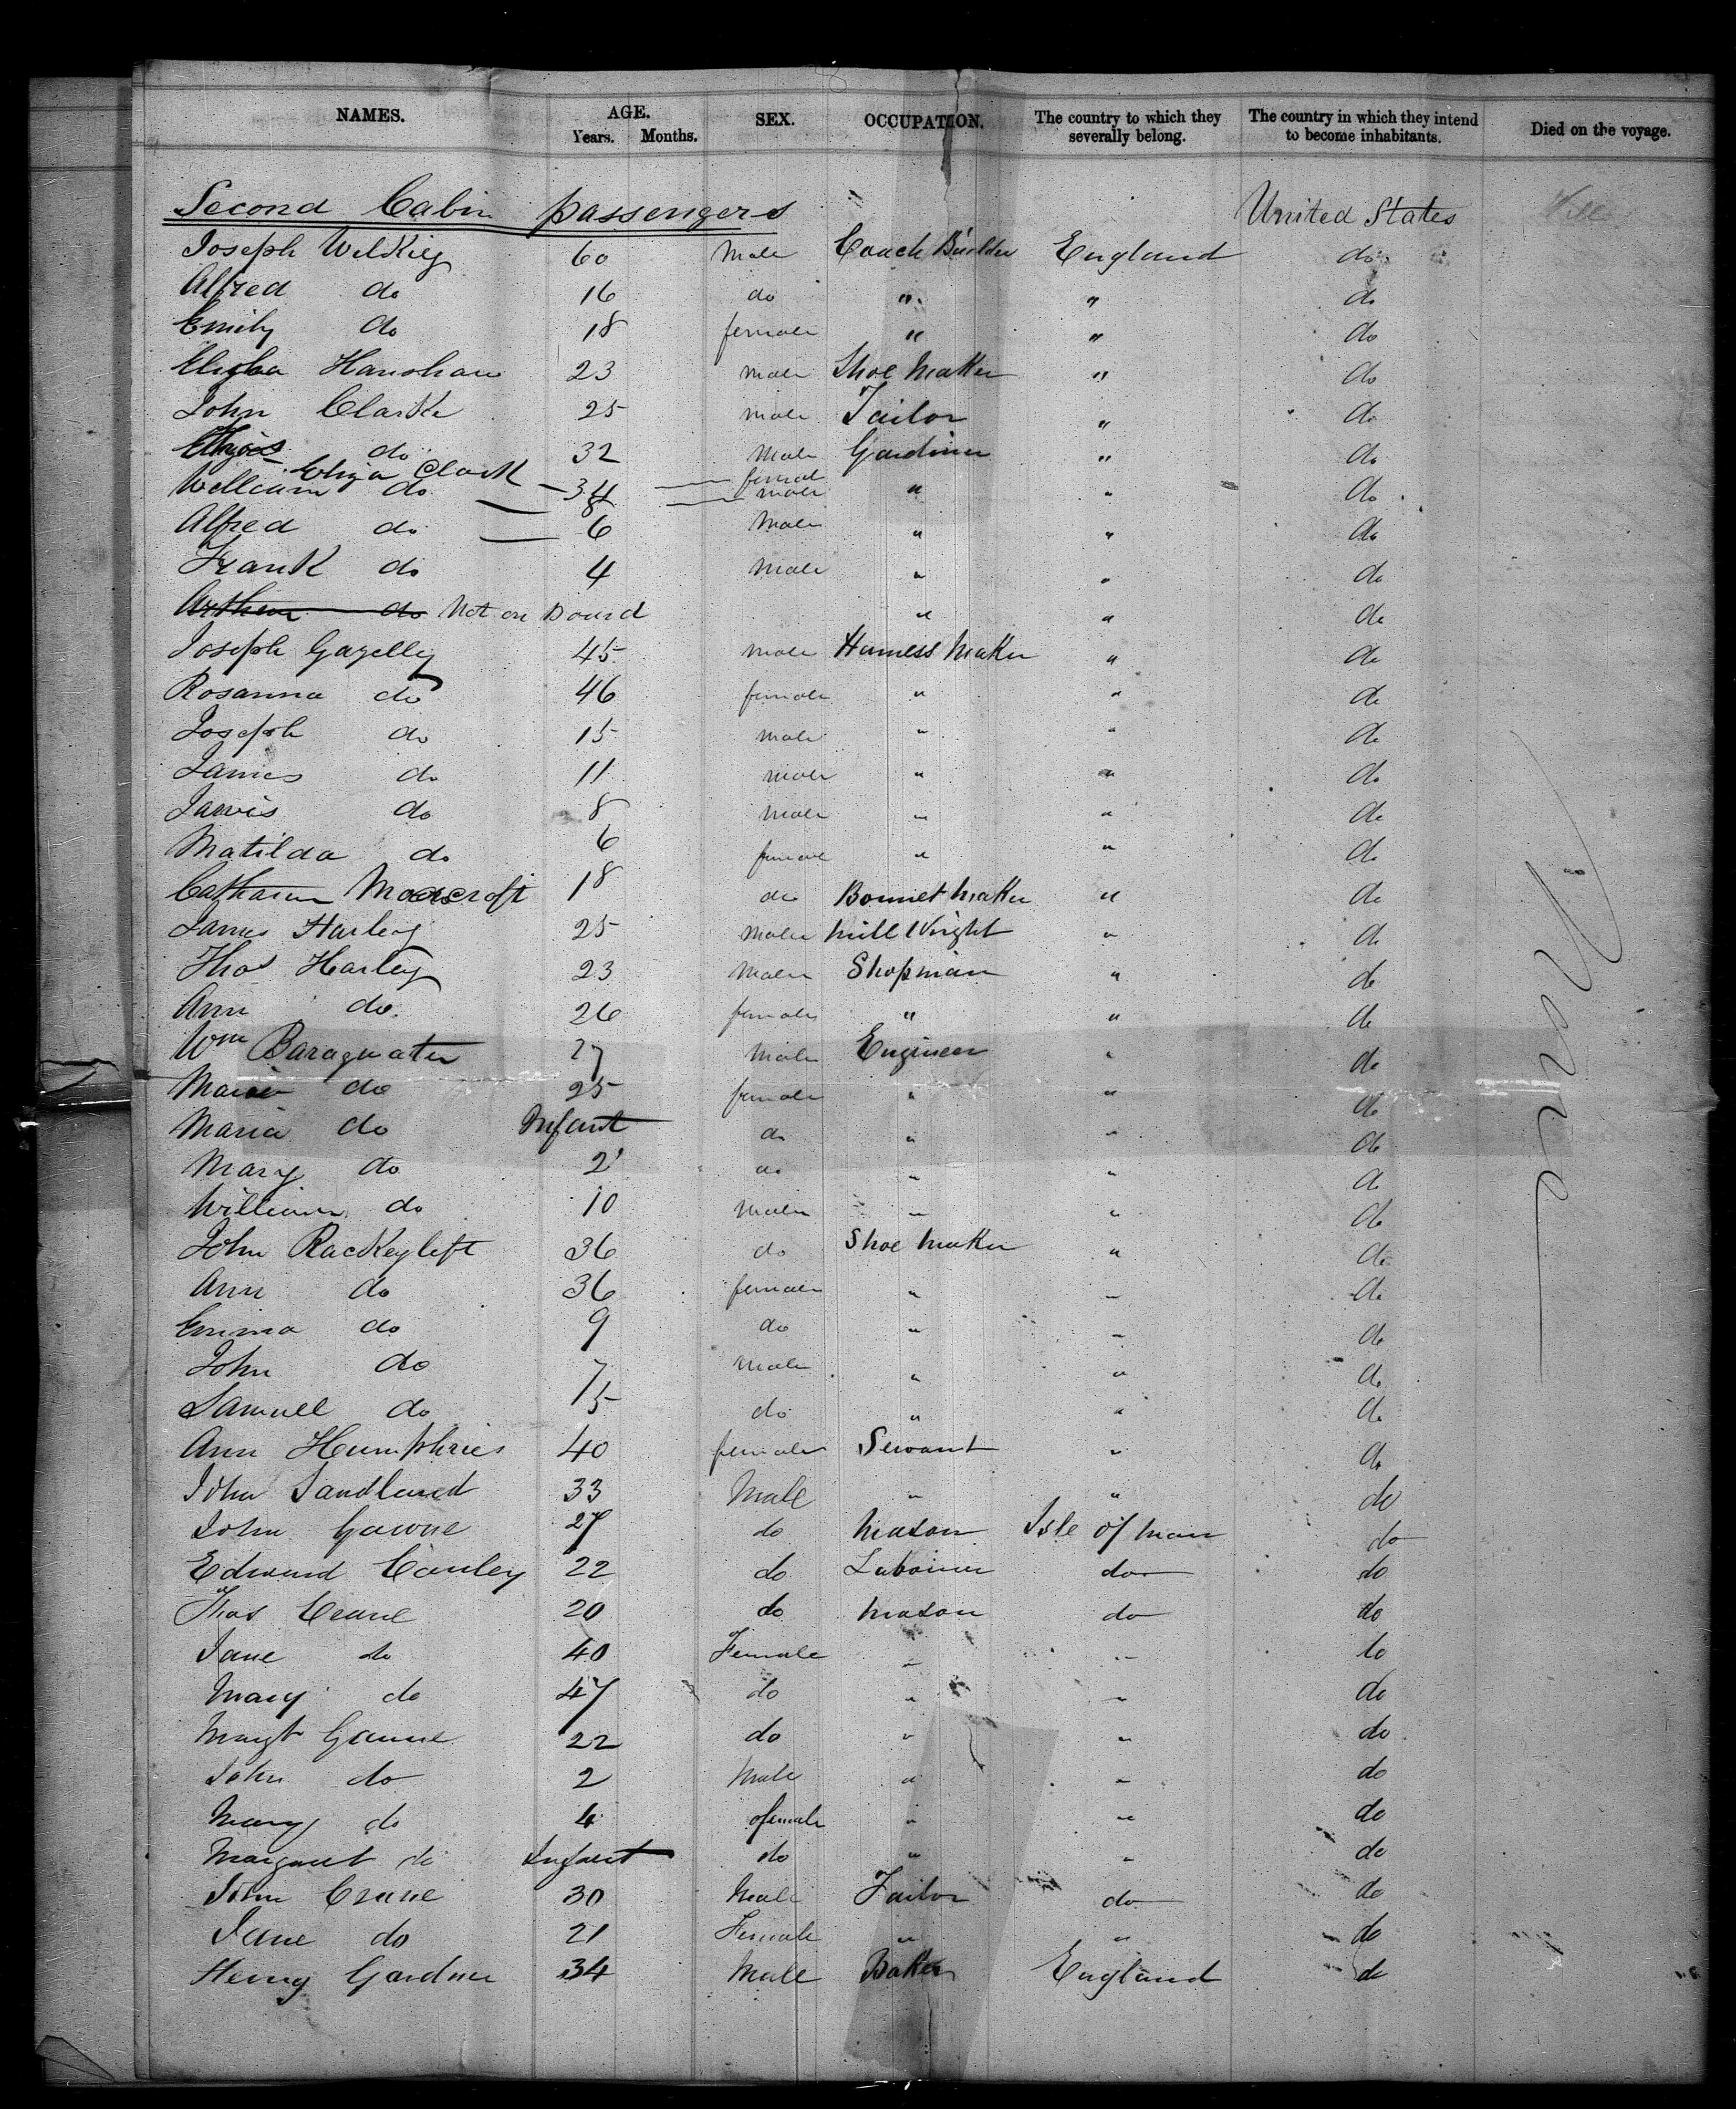 NAMES. AGE. Years. Months. SEX. OCCUPATION. The country to which they severally belong. The country in which they intend to become inhabitants. Died on the voyage.
Second Cabin passengers United States
Joseph Wilkiy 60 Male Coach Builder England do
Alfred do 16 do " " do
Emily do 18 female " " do
Hanshaw 23 male Shoe Maker " do
John Clarke 25 male Tailor " do
do 32 Male Gardiner " do
Eliza Clark 34 femal
William do 8 male " " do
Alfred do 6 Male " " do
Frank do 4 Male " " do
Arthur do Not on Board " " do
Joseph Gazelley 45 male Harness Maker " do
Rosanna do 46 female " " do
Joseph do 15 male " " do
James do 11 male " " do
Jarvis do 8 Male " " do
Matilda do 6 female " " do
Catharine Moorscroft 18 do Bonnet Maker " do
James Harley 25 Male Mill Wright " do
Thos Harley 23 Male Shopman " do
Ann do 26 female " " do
Wm Baraguater 27 Male Engineer " do
Maria do 25 female " " do
Maria do Infant do " " do
Mary do 2 do " " do
William do 10 Male " " do
John Rackeyleft 36 do Shoe Maker " do
Ann do 36 female " " do
Emma do 9 do " " do
John do 7 Male " " do
Samuell do 15 do " " do
Ann Humphries 40 female Servant " do
John Sandland 33 Male " " do
John Gawne 27 do Mason Isle of Man do
Edward Cauley 22 do Labourer do do
Thos Crane 20 do Mason do do
Jane do 40 Female " " do
Mary do 47 do " " do
Margt Gawne 22 do " " do
John do 2 Male " " do
Mary do 4 female " " do
Margaret do Infant do " " do
John Crane 30 Male Tailor do do
Jane do 21 Female " " do
Henry Gardner 34 Male Baker England do
None